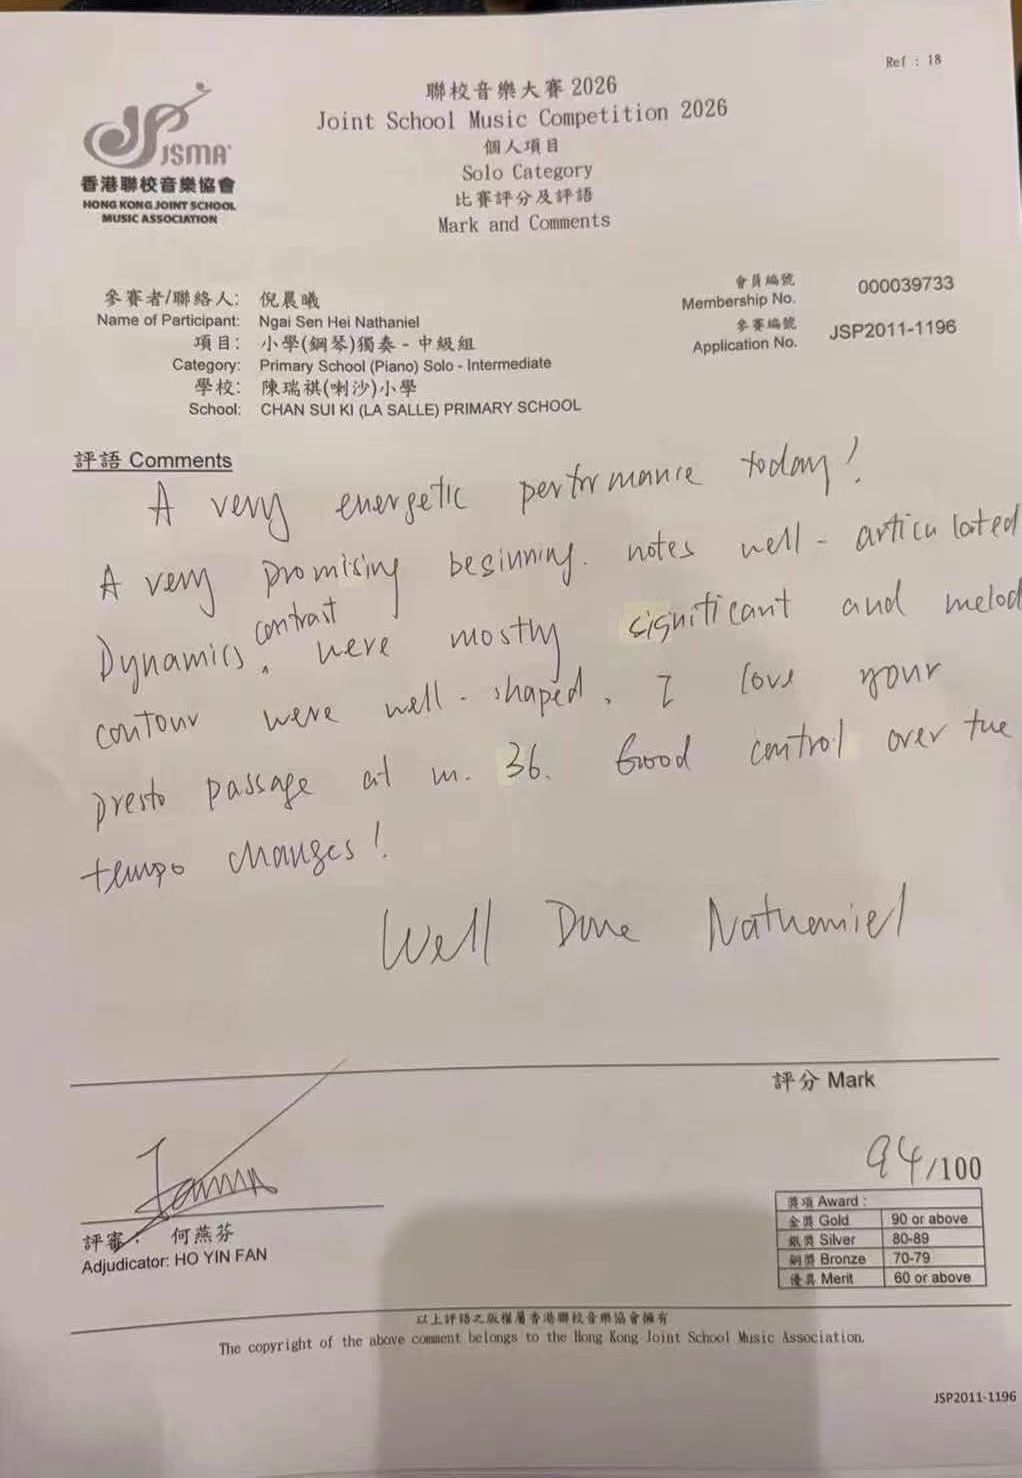 Ref : 18
聯校音樂大賽 2026
Joint School Music Competition 2026
個人項目
Solo Category
比賽評分及評語
Mark and Comments
JSMA
香港聯校音樂協會
HONG KONG JOINT SCHOOL
MUSIC ASSOCIATION
參賽者/聯絡人: 倪晨曦
Name of Participant: Ngai Sen Hei Nathaniel
項目: 小學(鋼琴)獨奏 - 中級組
Category: Primary School (Piano) Solo - Intermediate
學校: 陳瑞祺(喇沙)小學
School: CHAN SUI KI (LA SALLE) PRIMARY SCHOOL
會員編號
Membership No. 000039733
參賽編號
Application No. JSP2011-1196
評語 Comments
A very energetic performance today!
A very promising beginning. notes well - articulated
Dynamics contrast were mostly significant and melod
contour were well - shaped. I love your
presto passage at m. 36. Good control over the
tempo changes!
Well Done Nathaniel
評分 Mark
94/100
獎項 Award :
金獎 Gold 90 or above
銀獎 Silver 80-89
銅獎 Bronze 70-79
優異 Merit 60 or above
評審: 何燕芬
Adjudicator: HO YIN FAN
以上評語之版權屬香港聯校音樂協會擁有
The copyright of the above comment belongs to the Hong Kong Joint School Music Association.
JSP2011-1196